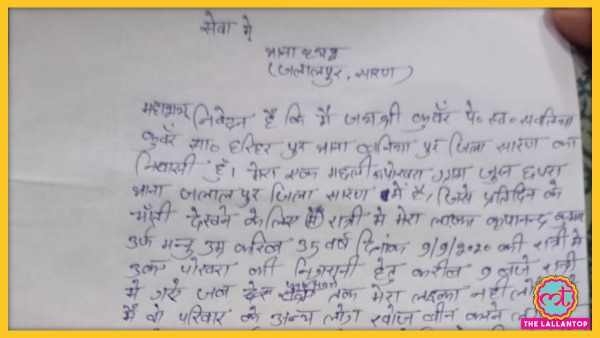 सेवा में
थाना
(जलालपुर, सारण)
महाशय
निवेदन है कि मैं जयश्री कुवँर पे० स्व०
कुवँर सा० हरिहर पुर थाना बनिया पुर जिला सारण का
निवासी हूँ। मेरा एक मछली पोखरा ग्राम छपरा
थाना जलाल पुर जिला सारण में है, जिसे प्रतिदिन के
भाँती देखने के लिए रात्री में मेरा लड़का कृपानन्द कुवर
उर्फ मन्टु उम्र करिब 35 वर्ष दिनांक 9/9/2020 की रात्री में
उक्त पोखरा की निगरानी हेतु करीब 9 बजे रात्री
में गए जब देर रात्री तक मेरा लड़का नहीं
मैं वो परिवार के अन्य लोग खोज बीन करने
THE LALLANTOP